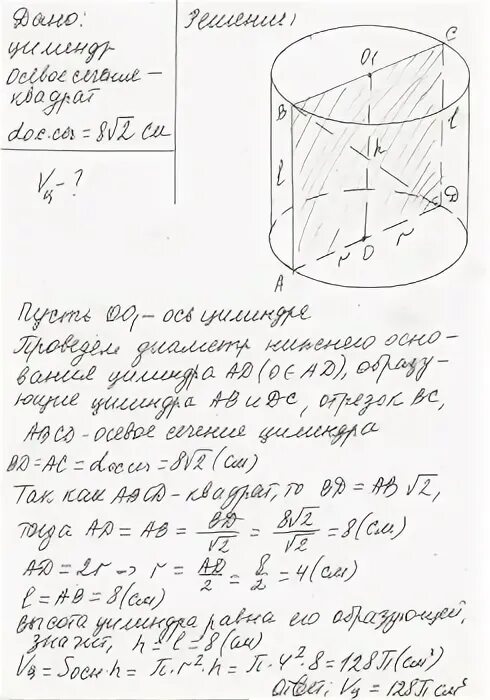 Дано:
цилиндр
осевое сечение –
квадрат
dос.сеч = 8√2 см
Vц – ?
Решение:
C
O₁
B
h
l
l
D
r
O
r
A
Пусть OO₁ – ось цилиндра
Проведём диаметр нижнего осно-
вания цилиндра AD (O∈AD), образу-
ющие цилиндра AB и DC, отрезок BC,
ABCD – осевое сечение цилиндра
BD = AC = dос.сеч = 8√2 (см)
Так как ABCD – квадрат, то BD = AB √2,
тогда AD = AB = BD/√2 = 8√2/√2 = 8 (см)
AD = 2r → r = AD/2 = 8/2 = 4 (см)
l = AB = 8 (см)
Высота цилиндра равна его образующей,
значит, h = l = 8 (см)
Vц = Sосн · h = π · r² · h = π · 4² · 8 = 128π (см³)
Ответ: Vц = 128π см³